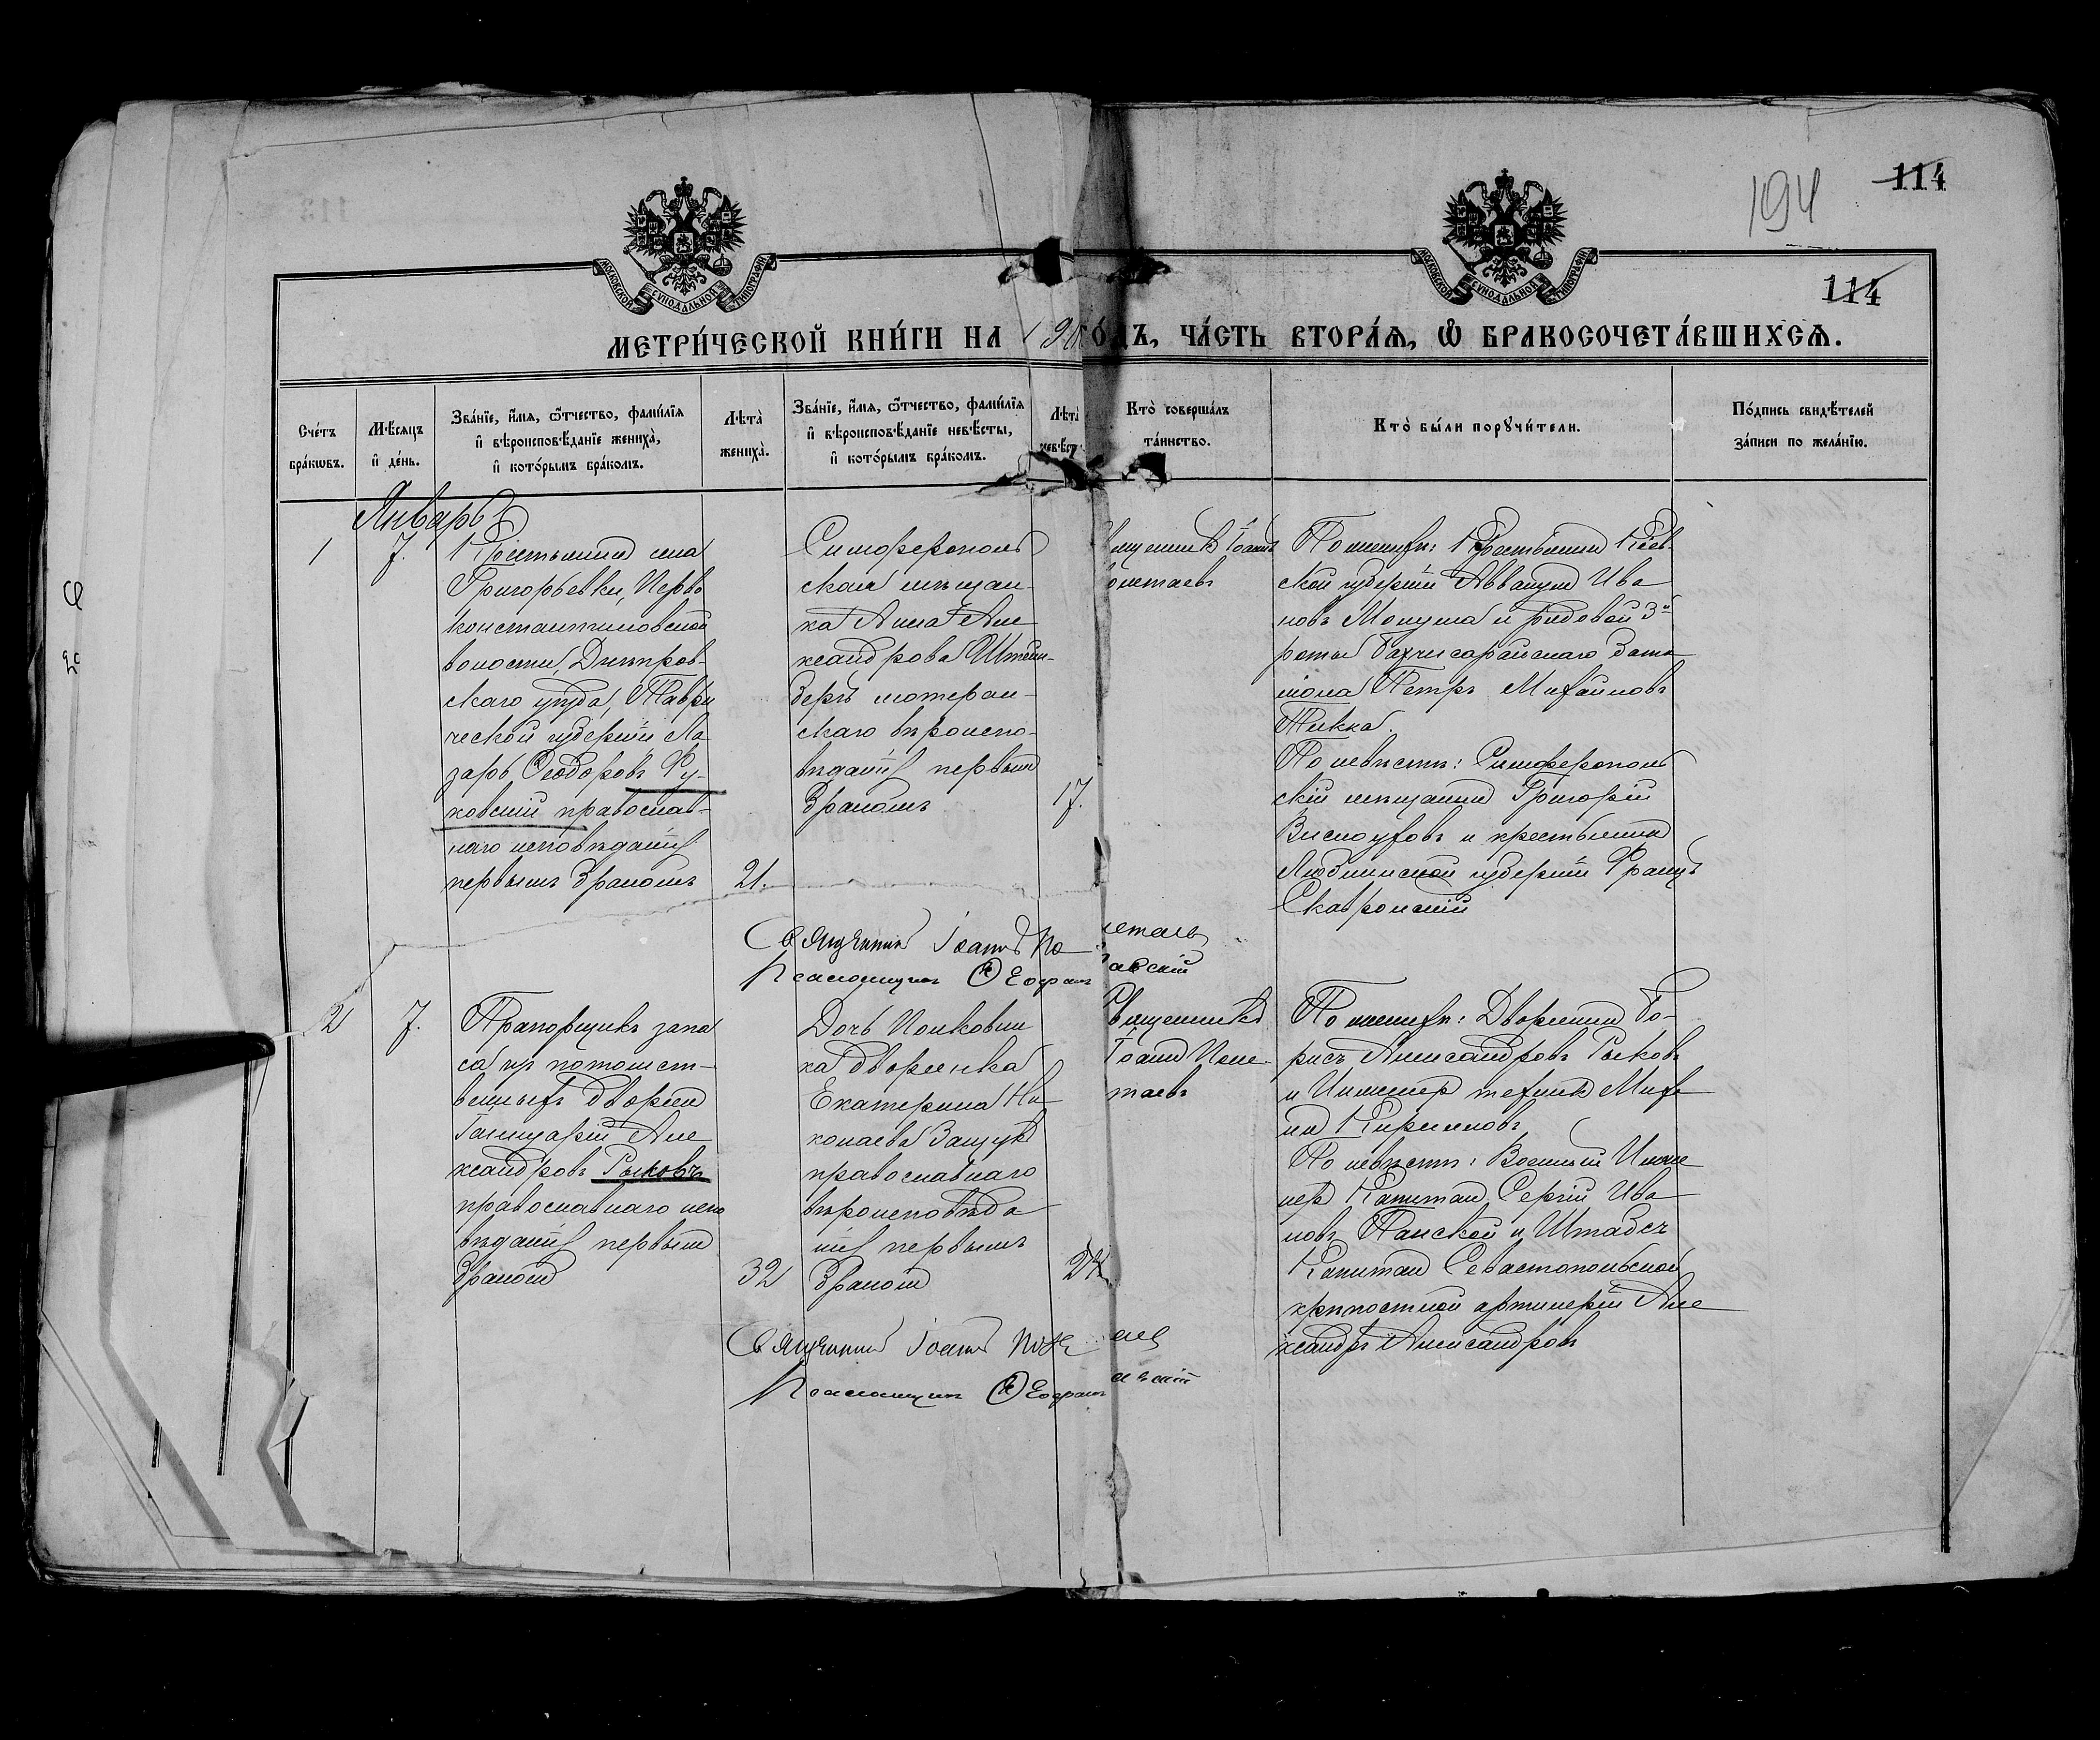 194
114
114
МОСКОВСКОЙ СУНОДАЛЬНОЙ ТИПОГРАФІИ
МОСКОВСКОЙ СУНОДАЛЬНОЙ ТИПОГРАФІИ
МЕТРИ́ЧЕСКОЙ КНИ́ГИ НА 19 ГО́ДЪ, ЧА́СТЬ ВТОРА́Я, Ѽ БРАКОСОЧЕТА́ВШИХСѦ.
Сче́тъ
бра́кѡвъ.
Мѣ́сѧцъ
и҆ де́нь.
Зва́нїе, и҆́мѧ, ѻ҆́тчество, фами́лїѧ
и҆ вѣроисповѣ́данїе жениха̀,
и҆ кото́рымъ бра́комъ.
Лѣта̀
жениха̀.
Зва́нїе, и҆́мѧ, ѻ҆́тчество, фами́лїѧ
и҆ вѣроисповѣ́данїе невѣ́сты,
и҆ кото́рымъ бра́комъ.
Лѣта̀
невѣ́сты
Кто̀ соверша́лъ
та́инство.
Кто̀ бы́ли порꙋчи́тели.
По́дпись свидѣ́телей
за́писи по жела́нїю.
Январь
1
7.
Крестьянинъ села
Григорьевки, Черво
константиновской
волости, Днѣпров-
скаго уѣзда, Таври
ческой губерніи Ла
зарь Ѳеодоровъ Фу-
ковскій православ-
наго исповѣданія
первымъ бракомъ
21.
Симферополь
ская мѣщан-
ка Анна Але
ксандрова Штейн-
бергъ лютеран-
скаго вѣроиспо-
вѣданія первымъ
бракомъ
17.
вященникъ Іоаннъ
олетаевъ
По женихѣ: Крестьянинъ Кіев-
ской губерніи Аввакумъ Ива
новъ Мопуша и рядовой 3й
роты Бахчисарайскаго бата
ліона Петръ Михайловъ
Тикка.
По невѣстѣ: Симферополь
скій мѣщанинъ Григорій
Вислоуховъ и крестьянинъ
Люблинской губерніи Францъ
Скавронскій
Священникъ Іоаннъ По летаевъ
Псаломщикъ Ѳеофанъ
2
7.
Прапорщикъ запа
са изъ потомст-
венныхъ дворянъ
Геннадій Але
ксандровъ Рыковъ
православнаго испо
вѣданія первымъ
бракомъ
32
Дочь Полковни
ка дворянка
Екатерина Ни
колаева Защукъ
православнаго
вѣроисповѣда
нія первымъ
бракомъ
24.
Священникъ
Іоаннъ Поле-
таевъ
По женихѣ: Дворянинъ Бо-
рисъ Александровъ Рыковъ
и Инженеръ техникъ Миха
илъ Кирилловъ
По невѣстѣ: Военный Инже
неръ Капитанъ Сергій Ива
новъ Панской и Штабсъ
Капитанъ Севастопольской
крѣпостной артиллеріи Але
ксандръ Александровъ
Священникъ Іоаннъ Поле
Псаломщикъ Ѳеофанъ